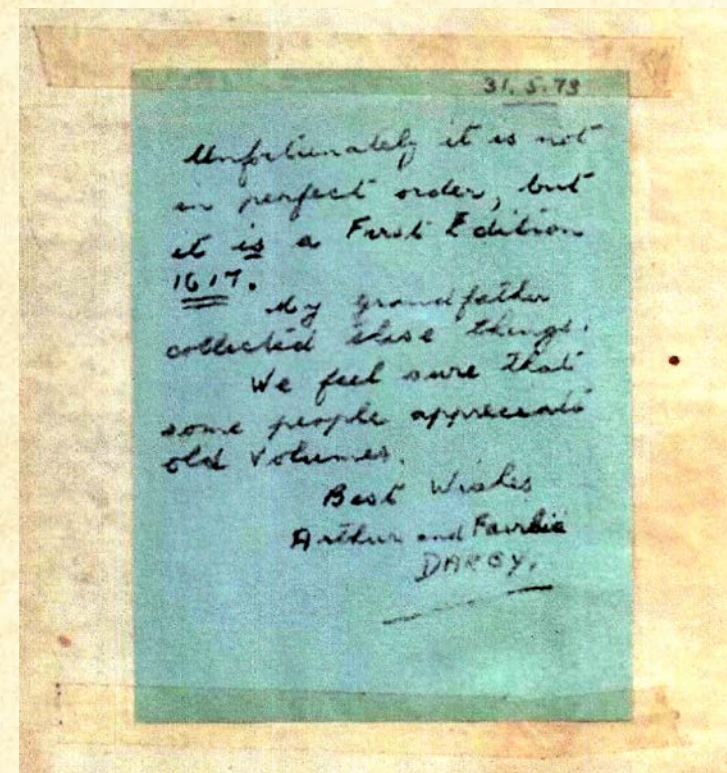 31.5.73
Unfortunately it is not
in perfect order, but
it is a First Edition
1617.
My grandfather
collected these things.
We feel sure that
some people appreciate
old Volumes.
Best Wishes
Arthur and
DARBY.